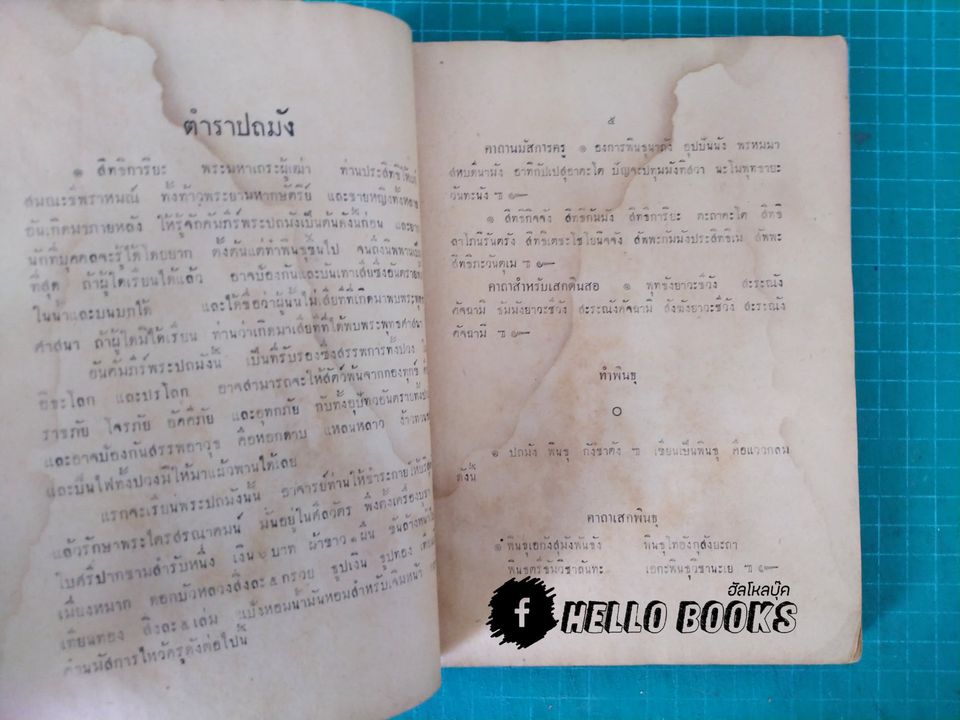 ตำราปถมัง
๑ สิทธิการิยะ พระมหาเถระผู้เฒ่า ท่านประสิทธิ์ให้แก่
สมณะชีพราหมณ์ ทั้งท้าวพระยามหากษัตริย์ และชายหญิงทั้งหลาย
อันเกิดมาภายหลัง ให้รู้จักคัมภีร์พระปถมังเป็นต้นดังนี้ก่อน และยาก
นักที่บุคคลจะรู้ได้โดยยาก ตั้งต้นแต่ทำพินธุขึ้นไป จนถึงนิพพานเป็น
ที่สุด ถ้าผู้ใดเรียนได้แล้ว อาจป้องกันและบันเทาเสียซึ่งอันตราย
ในน้ำและบนบกได้ และได้ชื่อว่าผู้นั้นไม่เสียทีที่เกิดมาพบพระพุทธ
ศาสนา ถ้าผู้ใดมิได้เรียน ท่านว่าเกิดมาเสียทีที่ได้พบพระพุทธศาสนา
อันคัมภีร์พระปถมังนี้ เป็นที่รับรองซึ่งสรรพการทั้งปวง
อิธะโลก และปรโลก อาจสามารถจะให้สัตว์พ้นจากกองทุกข์
ราชภัย โจรภัย อัคคีภัย และอุทกภัย กับทั้งอุปัทวอันตรายทั้งปวง
และอาจป้องกันสรรพอาวุธ คือหอกดาบ แหลนหลาว ง้าว
และปืนไฟทั้งปวงมิให้มาแผ้วพานได้เลย
แรกจะเรียนพระปถมังนั้น อาจารย์ท่านให้ชำระกายให้บริสุทธิ์
แล้วรักษาพระไตรสรณาคมน์ มั่นอยู่ในศีลวัตร พึงตั้งเครื่องบูชา
ใบศรีปากชามสำรับหนึ่ง เงิน ๖ บาท ผ้าขาว ๑ ผืน ขันล้างหน้า
เมี่ยงหมาก ดอกบัวหลวงสิ่งละ ๕ กรวย ธูปเงิน ธูปทอง
เทียนทอง สิ่งละ ๕ เล่ม แป้งหอมน้ำมันหอมสำหรับเจิมหน้า
คำนมัสการไหว้ครูดังต่อไปนี้
๕
คาถานมัสการครู ๑ องการพินธุนาถัง อุปปันนัง พรหมมา
สหบดีนามัง อาทิกัปเปสุอาคะโต ปัญจะปทุมมังทิสวา นะโมพุทธายะ
วันทะนัง ฯ ๛
๑ สิทธิกิจจัง สิทธิกัมมัง สิทธิการิยะ ตะถาคะโต สิทธิ
ลาโภนิรันตรัง สิทธิเตชะไชโยนิจจัง สัพพะกัมมังประสิทธิเม สัพพะ
สิทธิภะวันตุเม ฯ ๛
คาถาสำหรับเสกดินสอ ๑ พุทธังยาวะชีวัง สะระณัง
คัจฉามิ ธัมมังยาวะชีวัง สะระณังคัจฉามิ สังฆังยาวะชีวัง สะระณัง
คัจฉามิ ฯ ๛
ทำพินธุ
๐
๑ ปถมัง พินธุ กังชาตัง ฯ เขียนเป็นพินธุ คือแววกลม
ดังนี้
คาถาเสกพินธุ
๑ พินธุเอกังสุมังพันธัง พินธุโทอังกุสังยะถา
พินธุตรีชัมวิชาลันทะ เอกะพินธุวิชานะเย ฯ ๛
f
ฮัลโหลบุ๊ค
HELLO BOOKS